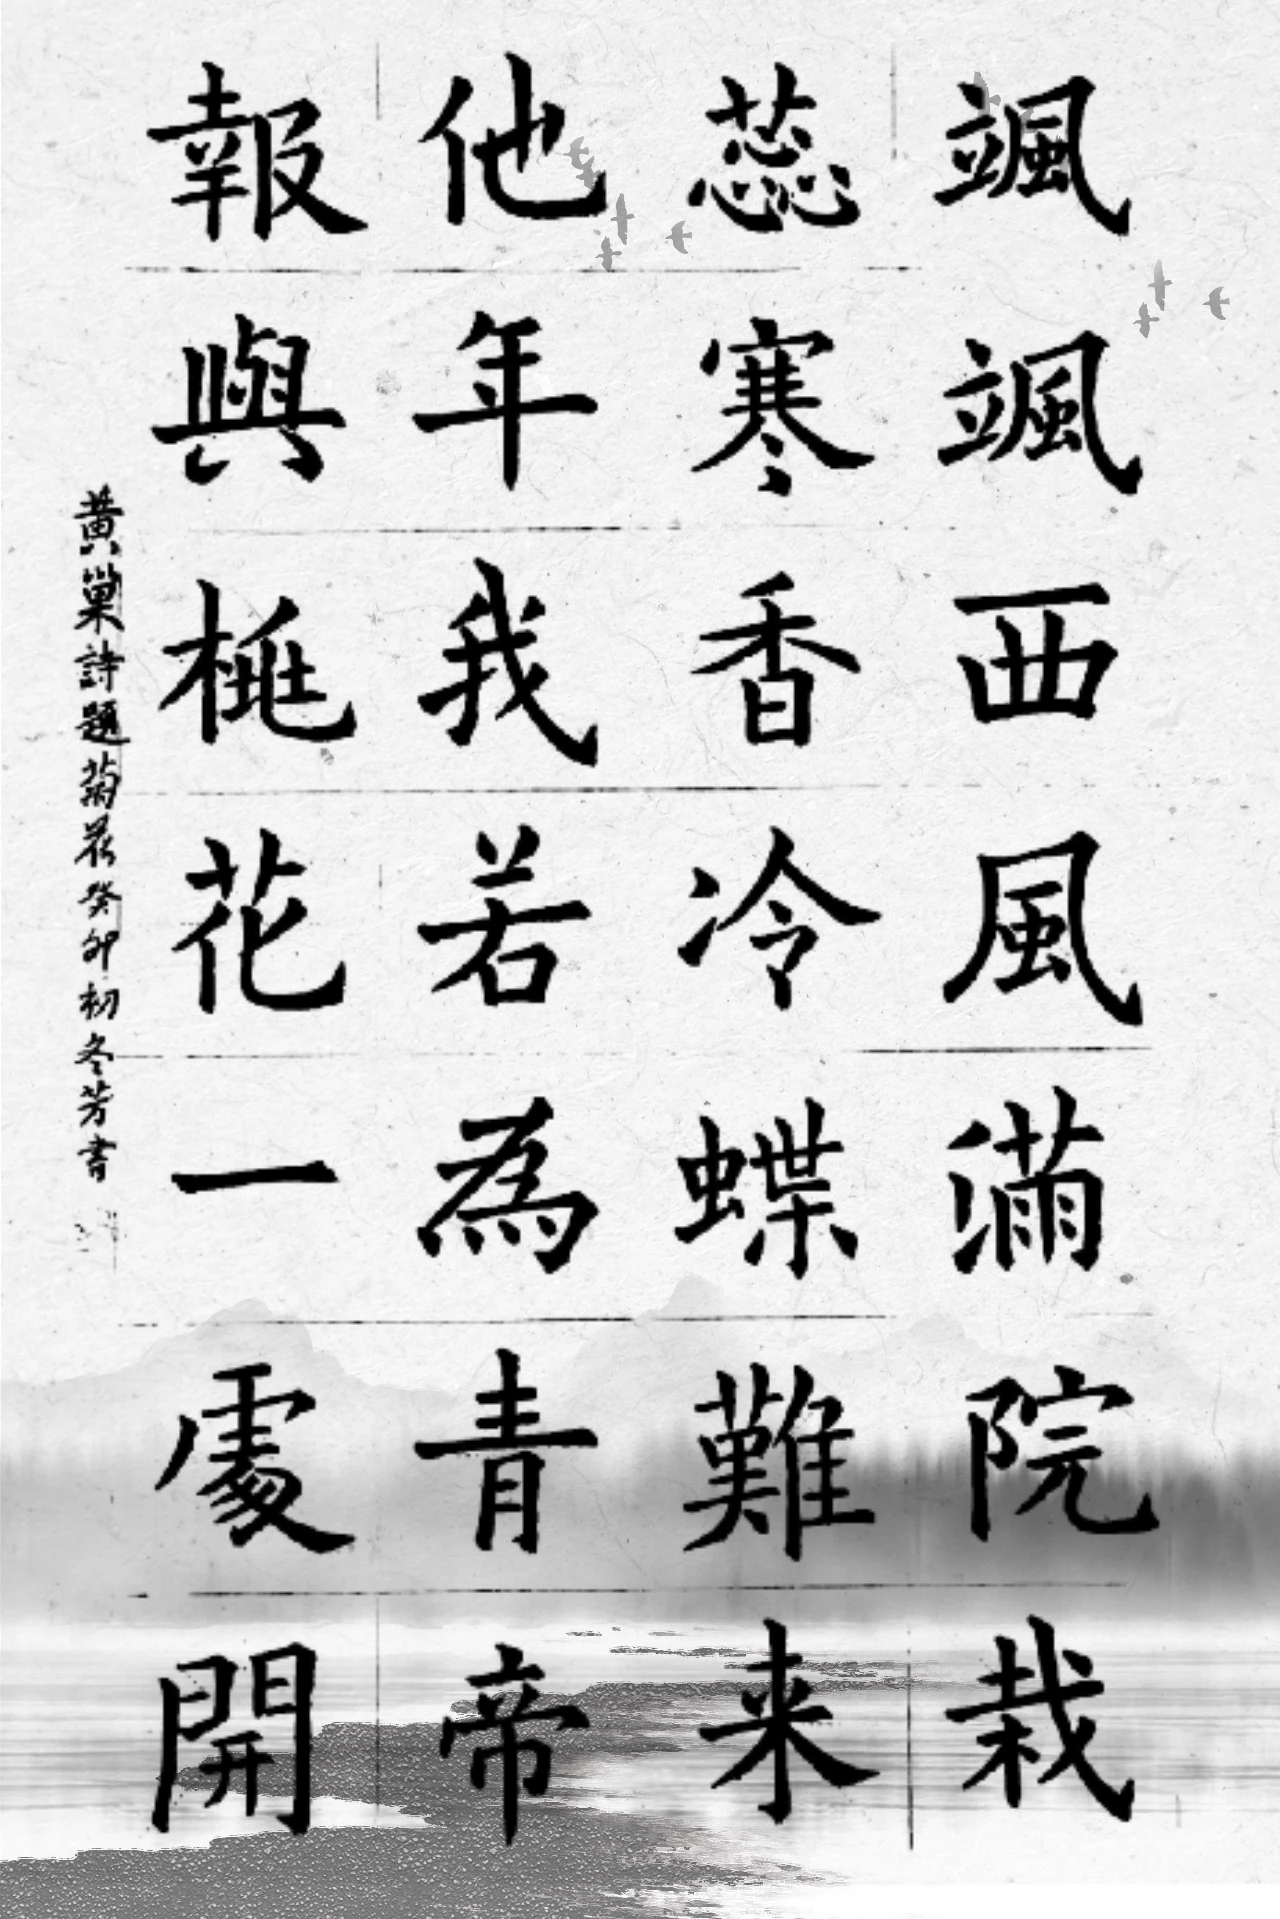 颯颯西風滿院栽
蕊寒香冷蝶難来
他年我若為青帝
報與桃花一處開
黄巢詩題菊花癸卯初冬芳書